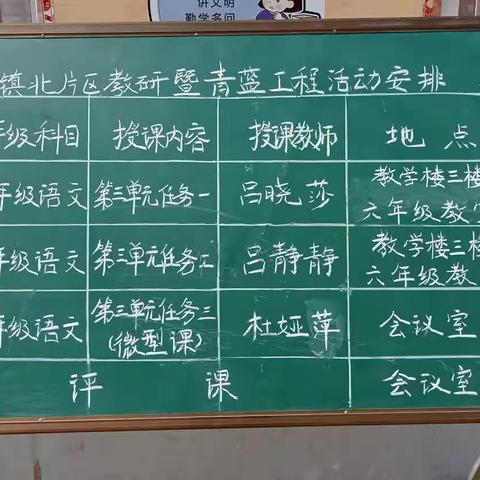 讲文明
勤学多问
镇北片区教研暨青蓝工程活动安排
年级科目 授课内容 授课教师 地点
年级语文 第三单元任务一 吕晓莎 教学楼三楼
六年级教
年级语文 第三单元任务二 吕静静 教学楼三楼
六年级教
年级语文 第三单元任务三
(微型课) 杜娅萍 会议室
评课 会议室